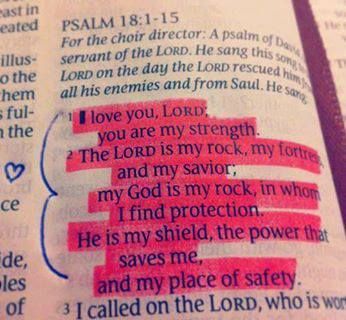 PSALM 18:1-15
For the choir director: A psalm of David
servant of the LORD. He sang this song
LORD on the day the LORD rescued him
all his enemies and from Saul. He sang
1 I love you, LORD;
you are my strength.
2 The LORD is my rock, my fortress
and my savior;
my God is my rock, in whom
I find protection.
He is my shield, the power that
saves me,
and my place of safety.
3 I called on the LORD, who is
east in
eated
illus-
o the
them
s ful-
n the
ce
ide,
ples
of